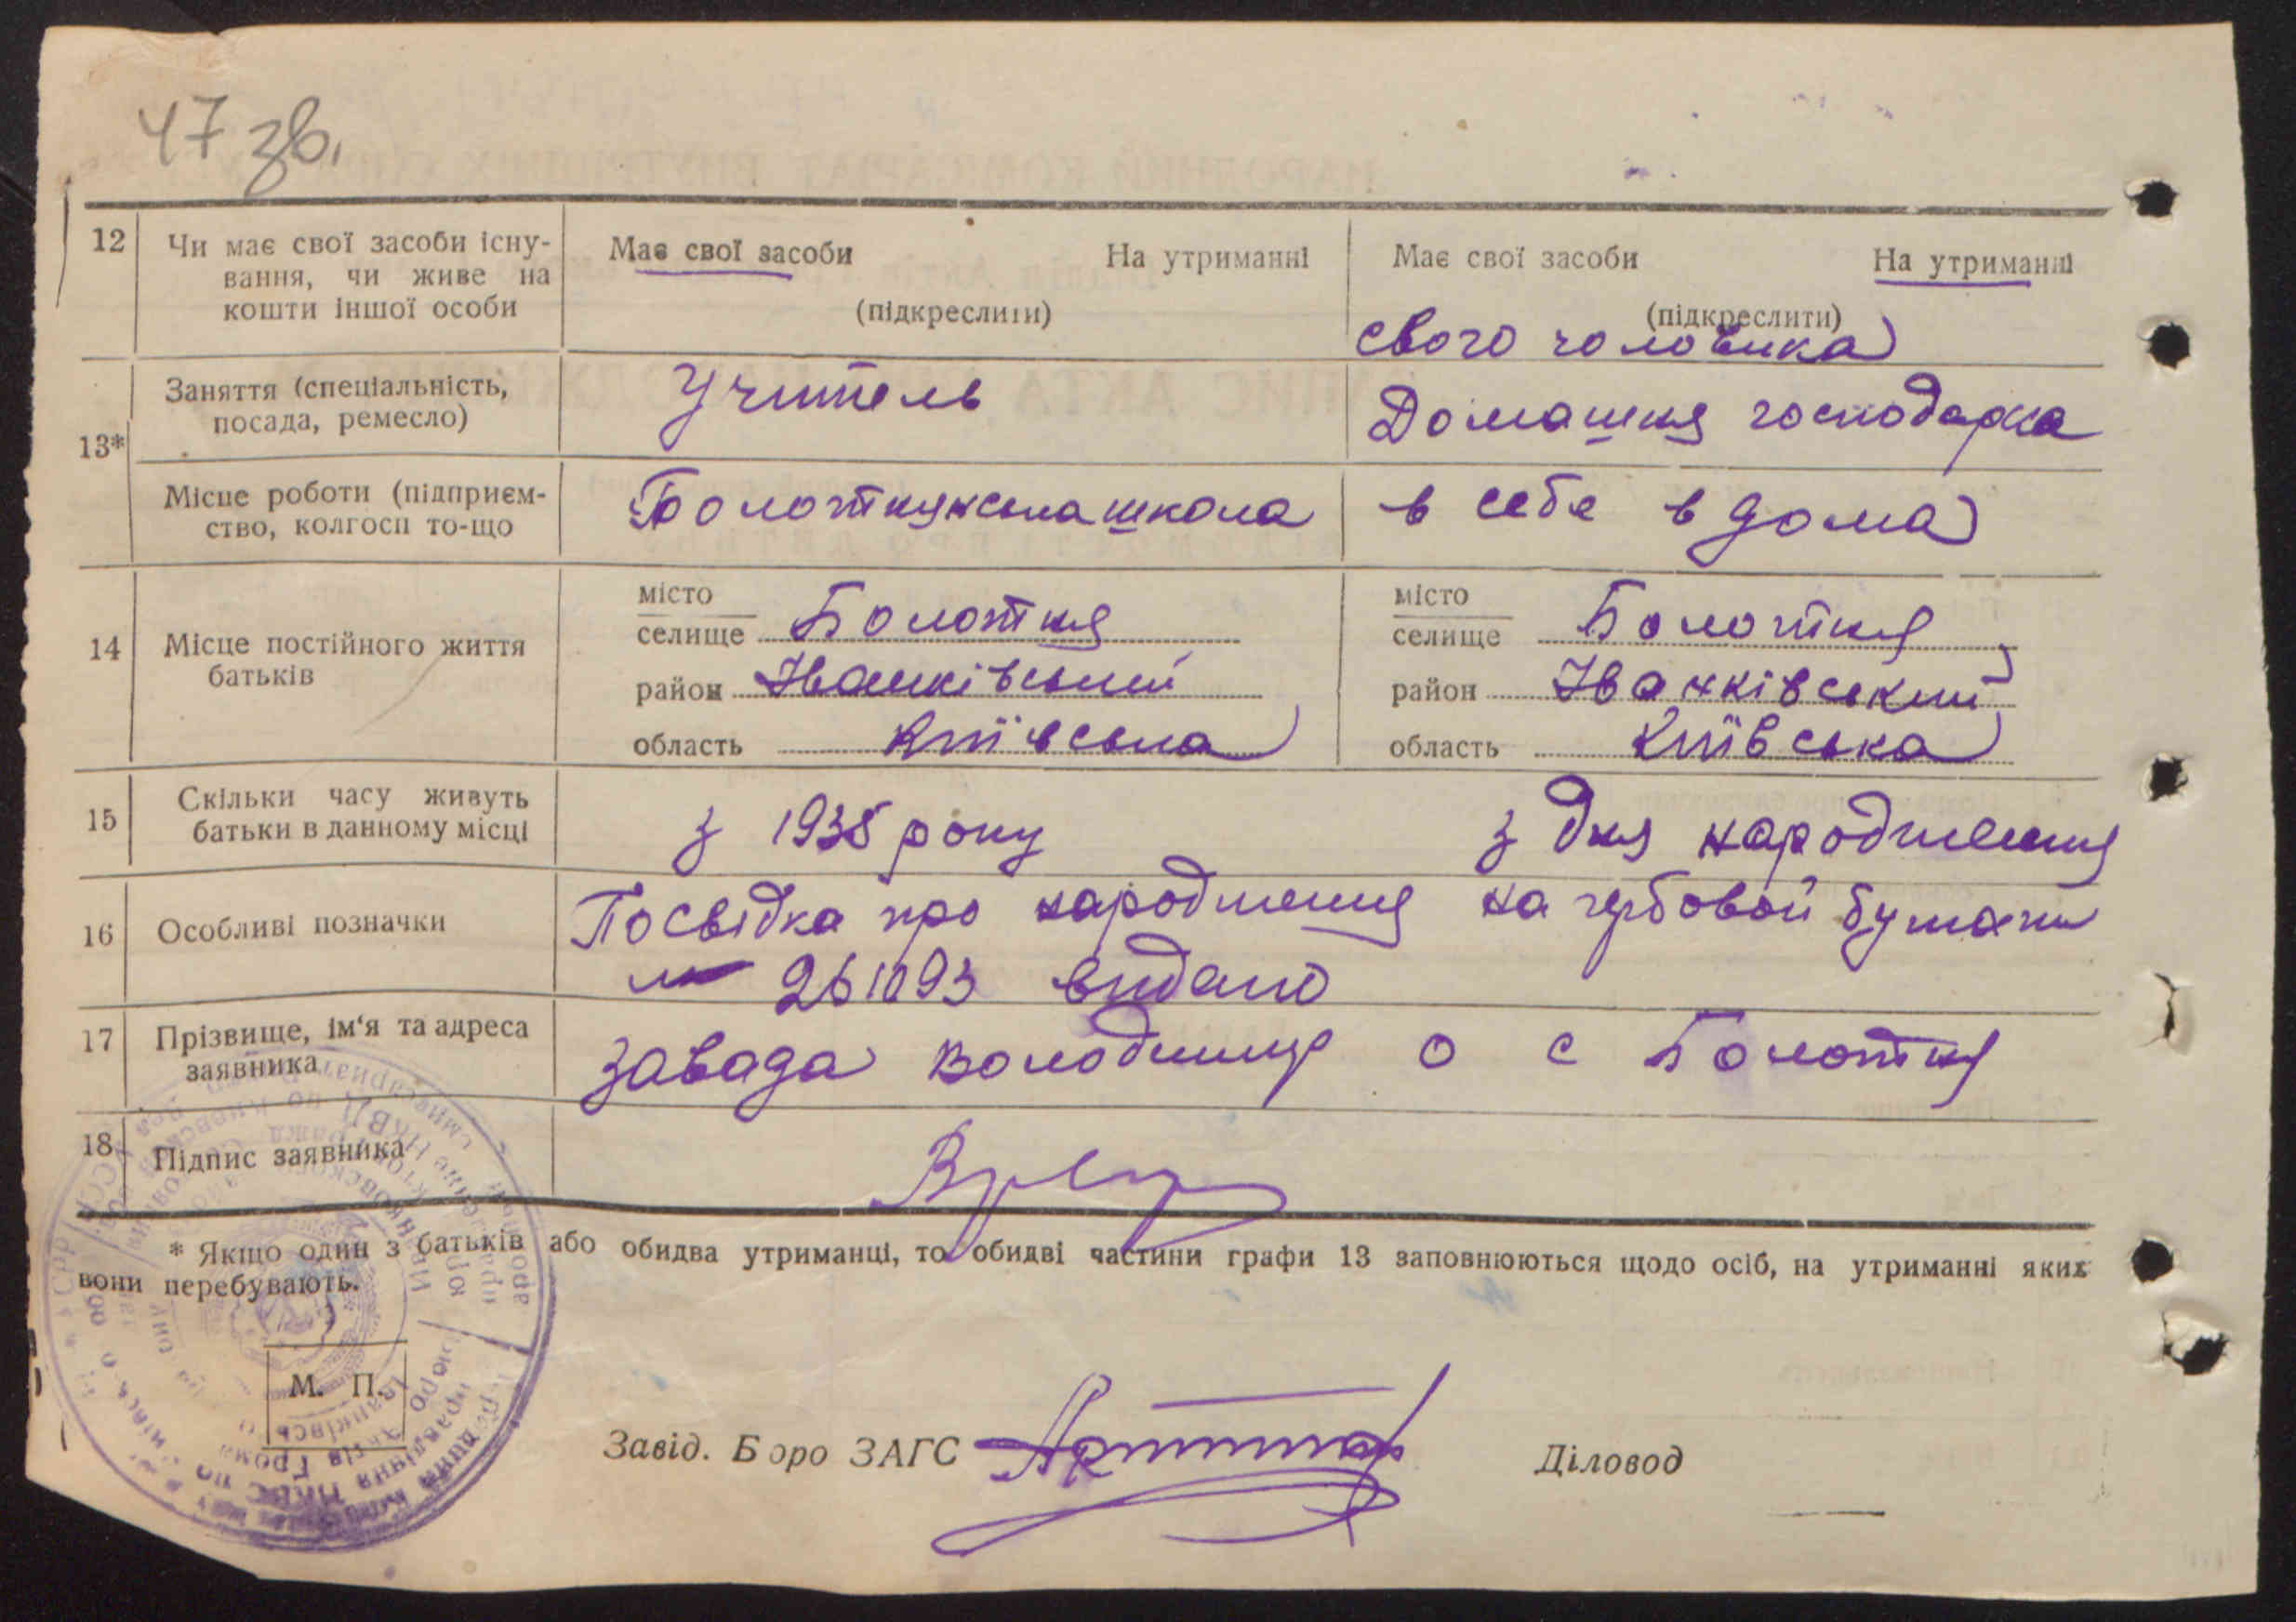 47 зв.
12 Чи має свої засоби існу- Має свої засоби На утриманні Має свої засоби На утриманні
вання, чи живе на
кошти іншої особи (підкреслити) (підкреслити)
свого чоловика
Заняття (спеціальність, Учитель Домашня господарка
посада, ремесло)
13*
Місце роботи (підприєм- Болотнянська школа в себе в дома
ство, колгосп то-що
місто місто
14 Місце постійного життя селище Болотня селище Болотня
батьків район Іванківський район Іванківський
область Київська область Київська
15 Скільки часу живуть з 1938 року з дня народження
батьки в данному місці
16 Особливі позначки Посвідка про народження на гербовой бумаги
№ 261093 видано
17 Прізвище, ім'я та адреса Завада Володимир О с Болотня
заявника
18 Підпис заявника
* Якщо один з батьків або обидва утриманці, то обидві частини графи 13 заповнюються щодо осіб, на утриманні яких
вони перебувають.
М. П.
Завід. Бюро ЗАГС Діловод